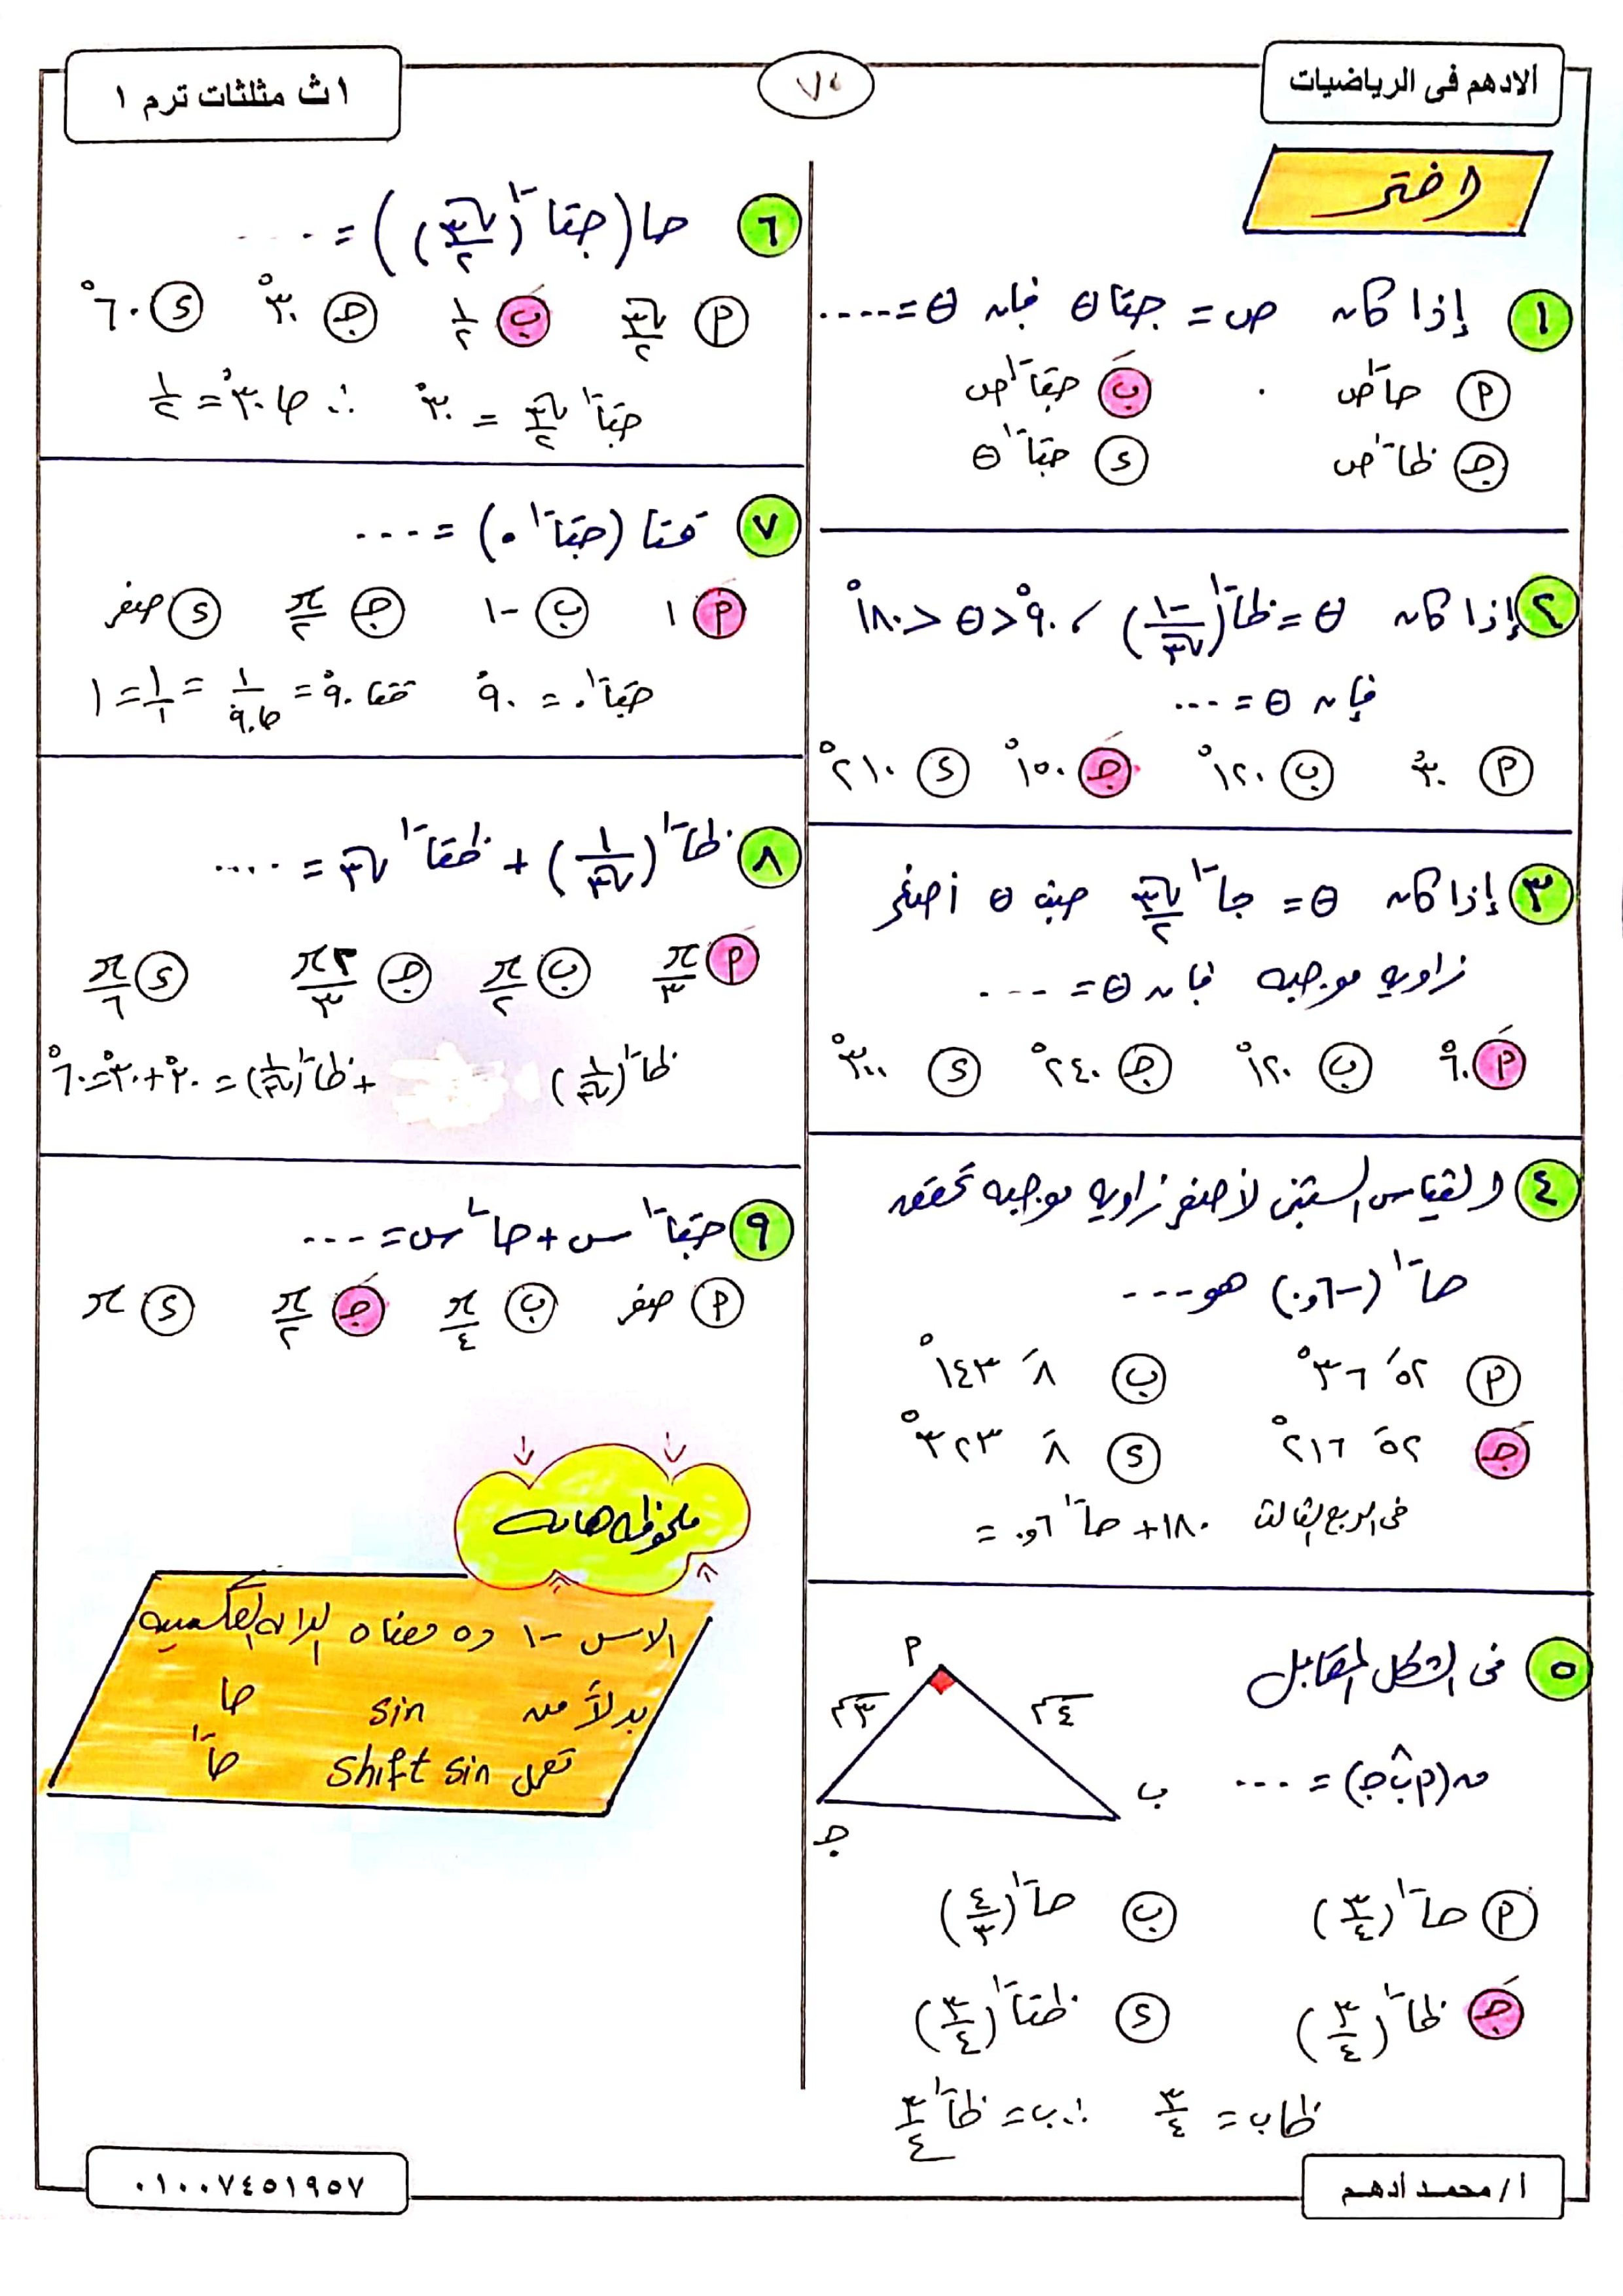 الادهم فى الرياضيات
٧٥
١ ث مثلثات ترم ١
اختر
١ إذا كان ص = جتا θ فإن θ = ....
أ جا⁻¹ ص
ب جتا⁻¹ ص
ج ظا⁻¹ ص
د جتا⁻¹ θ
٢ إذا كان θ = ظا⁻¹ (-١/√٣) ، ٩٠° < θ < ١٨٠°
فإن θ = ...
أ ٣٠° ب ١٢٠° ج ١٥٠° د ٢١٠°
٣ إذا كان θ = جا⁻¹ √٣/٢ حيث θ أصغر
زاوية موجبة فإن θ = ...
أ ٦٠° ب ١٢٠° ج ٢٤٠° د ٣٠٠°
٤ القياس الستينى لأصغر زاوية موجبة تحقق
جا⁻¹ (-٠,٦) هو ...
أ ٥٢َ ٣٦° ب ٨َ ١٤٣°
ج ٥٢َ ٢١٦° د ٨َ ٣٢٣°
فى الربع الثالث ١٨٠ + جا⁻¹ ٠,٦ =
٥ فى الشكل المقابل
أ
٣سم
٤سم
ب
ج
ق(أب̂ج) = ...
أ جا⁻¹ (٣/٤) ب جا⁻¹ (٤/٣)
ج ظا⁻¹ (٣/٤) د ظتا⁻¹ (٣/٤)
ظاب = ٣/٤ ∴ ب = ظا⁻¹ ٣/٤
٦ جا (جتا⁻¹ (√٣/٢)) = ....
أ √٣/٢ ب ١/٢ ج ٣٠° د ٦٠°
جتا⁻¹ √٣/٢ = ٣٠° ∴ جا ٣٠° = ١/٢
٧ قتا (جتا⁻¹ ٠) = ...
أ ١ ب -١ ج π/٢ د صفر
جتا⁻¹ ٠ = ٩٠° قتا ٩٠° = ١/جا٩٠ = ١/١ = ١
٨ ظا⁻¹ (١/√٣) + ظتا⁻¹ √٣ = ....
أ π/٣ ب π/٢ ج ٢π/٣ د π/٦
ظا⁻¹ (١/√٣) + ظا⁻¹ (١/√٣) = ٣٠° + ٣٠° = ٦٠°
٩ جتا⁻¹ س + جا⁻¹ س = ...
أ صفر ب π/٤ ج π/٢ د π
ملحوظه هامه
الاس -١ ده معناه الداله العكسيه
بدلاً من sin جا
تعمل shift sin جا⁻¹
أ / محمد ادهم
٠١٠٠٧٤٥١٩٥٧